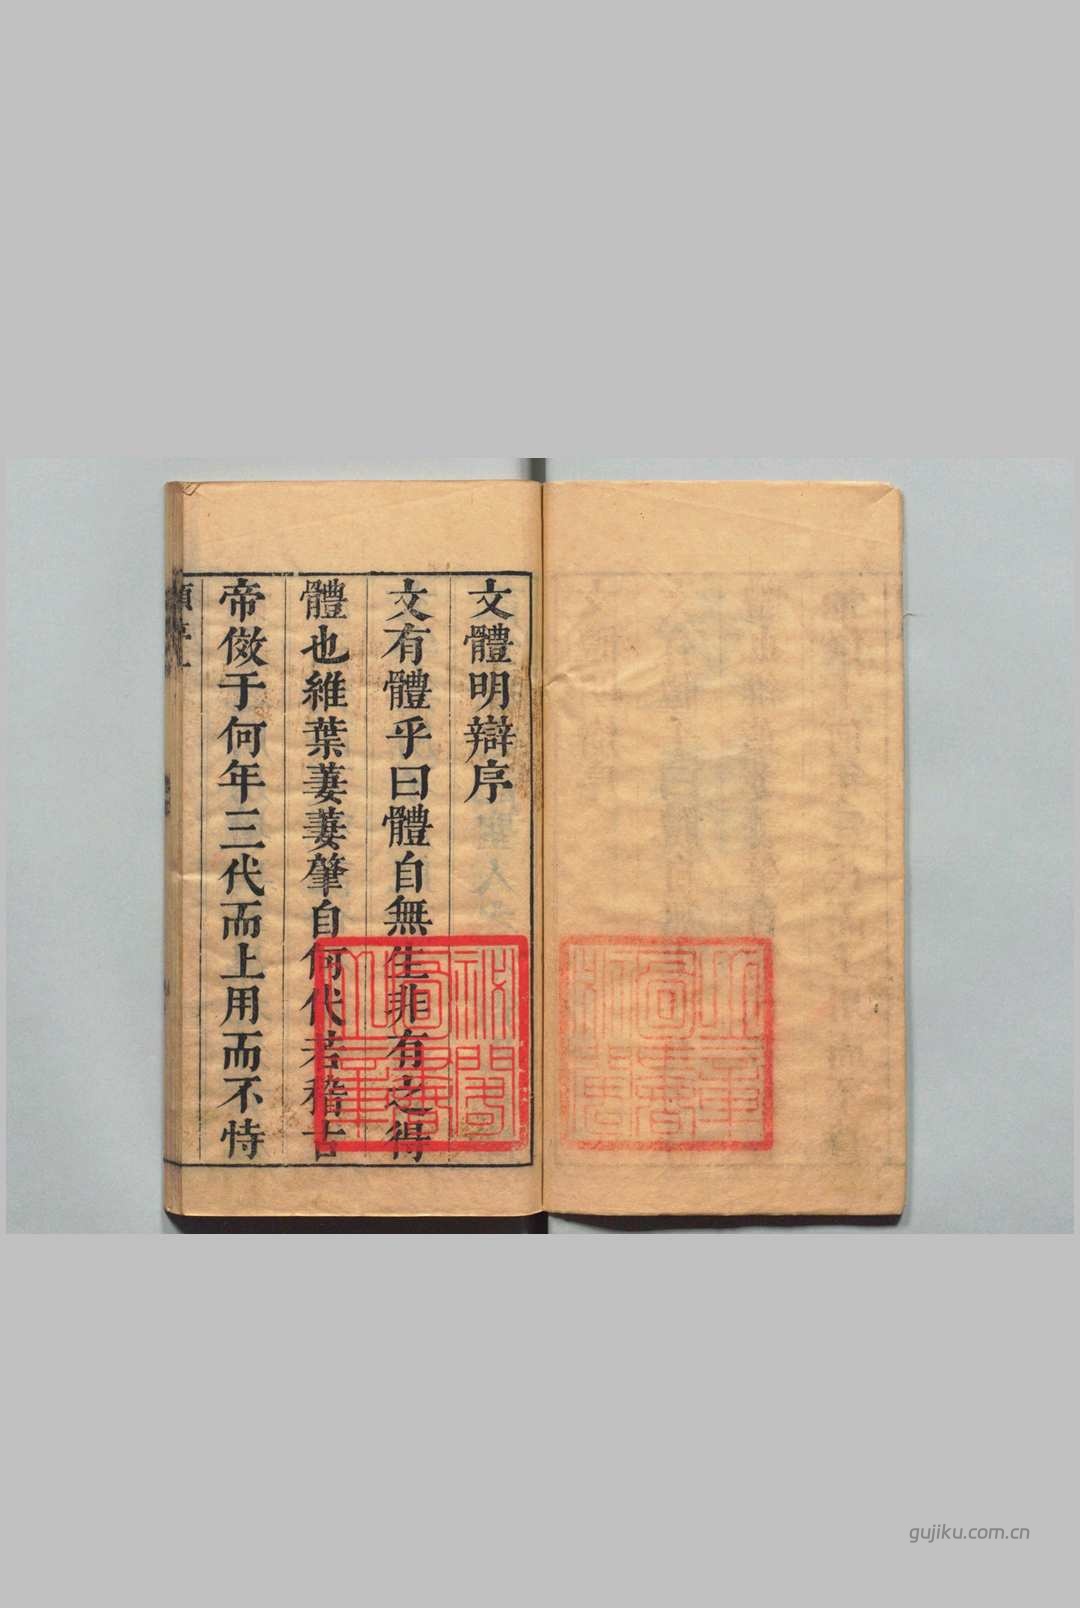 文體明辯序
文有體乎曰體自無生非有之得
體也維葉萋萋肇自何代若稽古
帝倣于何年三代而上用而不恃
祕閣
圖書
之章
gujiku.com.cn